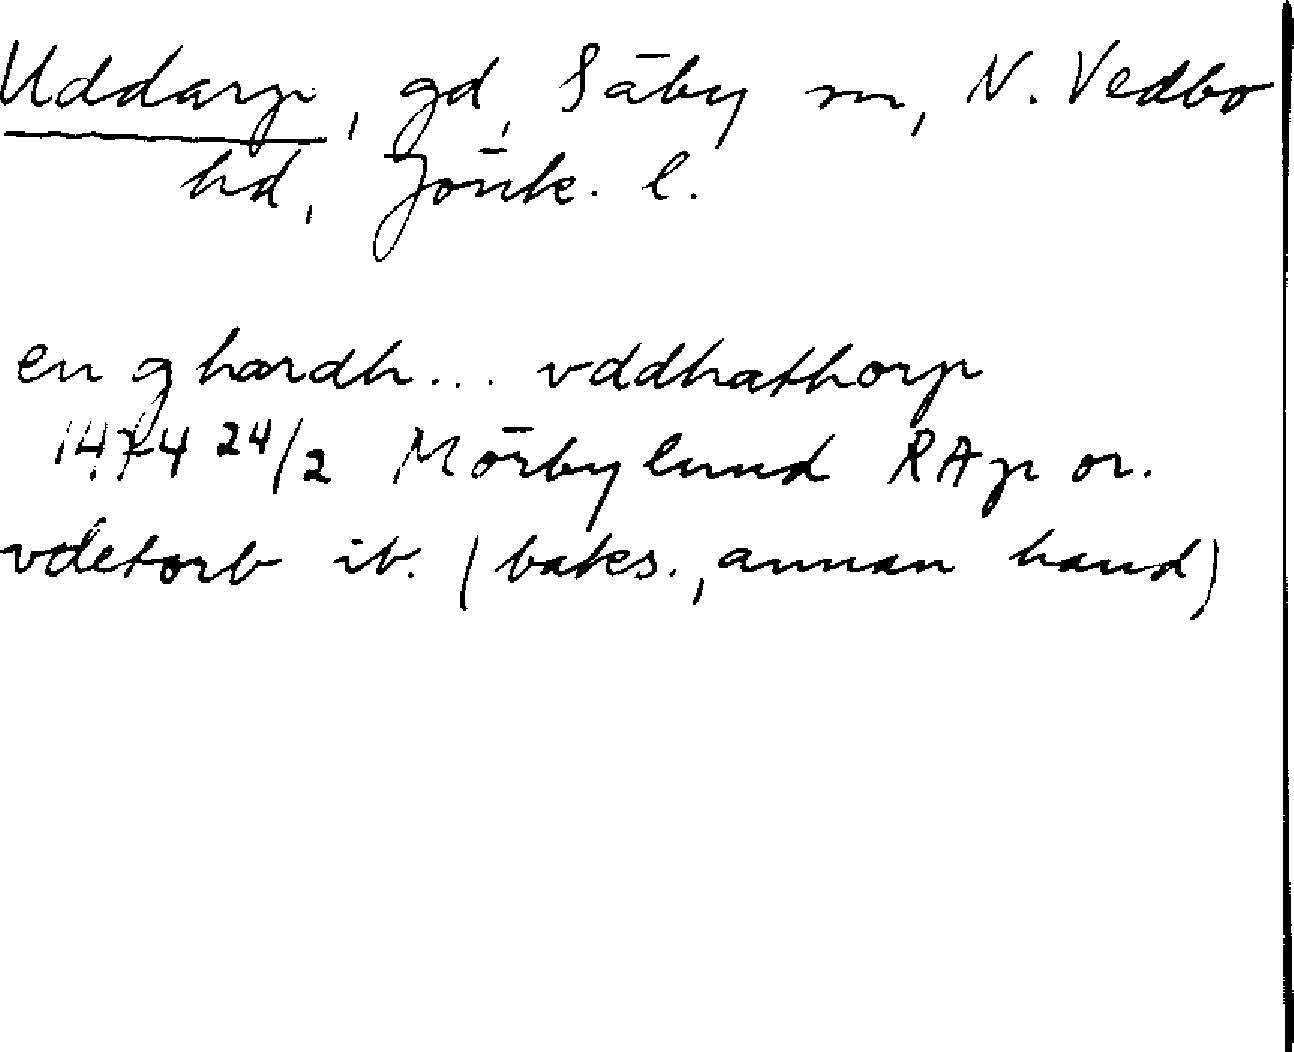 Uddarp, gd, Säby sn, N. Vedbo
hd, Jönk. l.
en ghardh... vddhathorp
1474 24/2 Mörbylund RAp or.
vdetorb ib. (baks., annan hand)